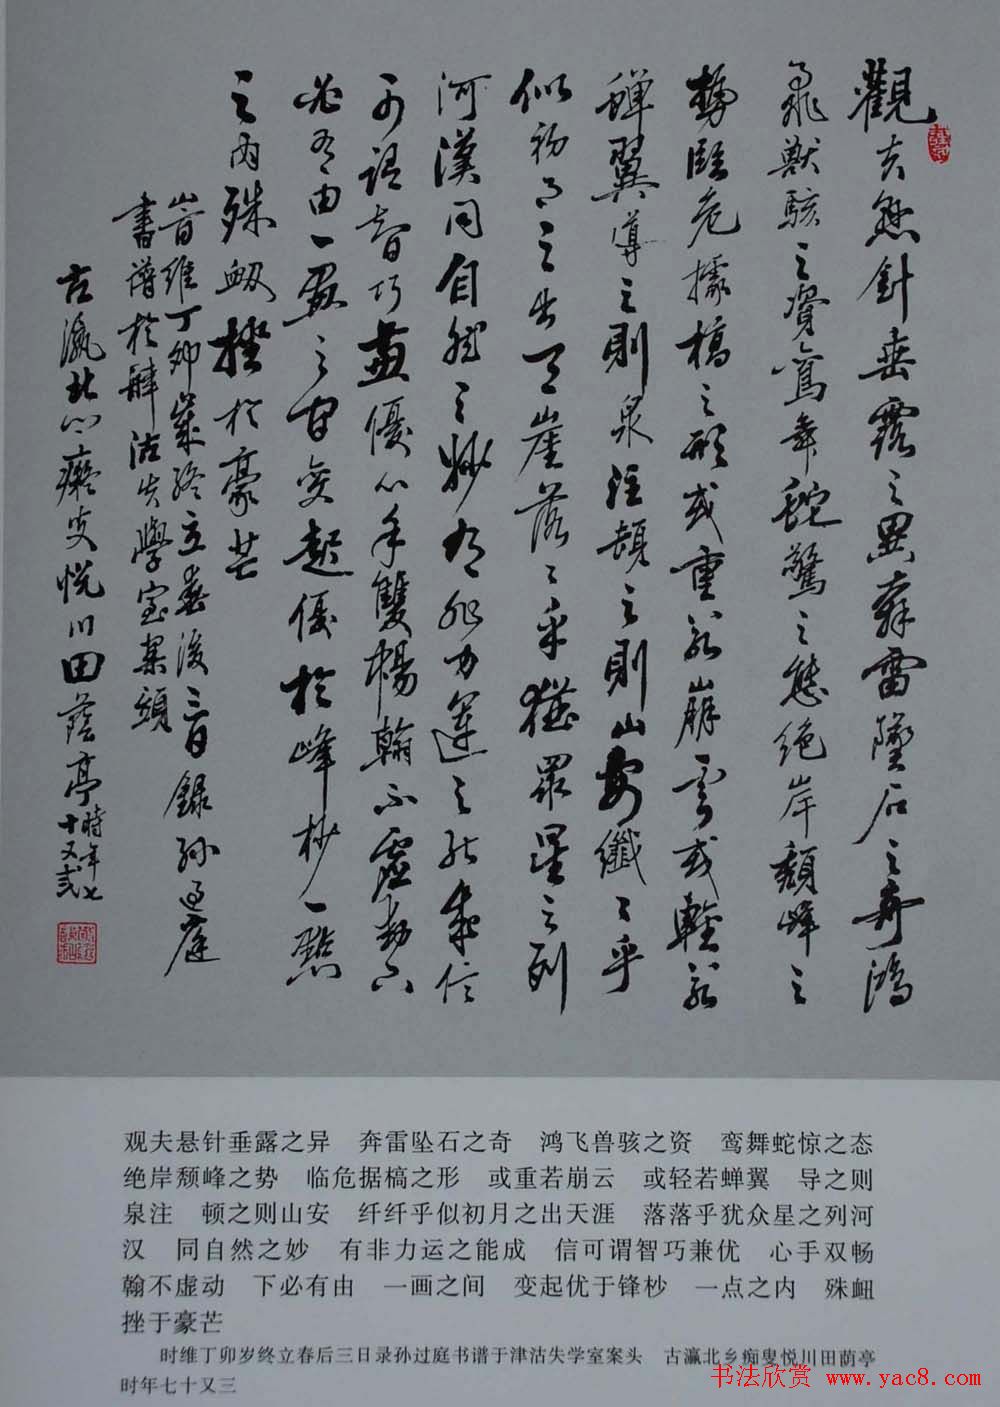 觀夫懸針垂露之異奔雷墜石之奇鴻
飛獸駭之資鸞舞蛇驚之態絕岸頹峰之
勢臨危據槁之形或重若崩雲或輕若
蟬翼導之則泉注頓之則山安纖〻乎
似初月之出天崖落〻乎猶眾星之列
河漢同自然之妙有非力運之能成信
可謂智巧兼優心手雙暢翰不虛動下
必有由一畫之間變起優於峰杪一點
之內殊衂挫於豪芒
時維丁卯歲終立春後三日錄孫過庭
書譜於津沽失學室案頭
古瀛北鄉癡叟悦川田蔭亭
時年七
十又
观夫悬针垂露之异　奔雷坠石之奇　鸿飞兽骇之资　鸾舞蛇惊之态
绝岸颓峰之势　临危据槁之形　或重若崩云　或轻若蝉翼　导之则
泉注　顿之则山安　纤纤乎似初月之出天涯　落落乎犹众星之列河
汉　同自然之妙　有非力运之能成　信可谓智巧兼优　心手双畅
翰不虚动　下必有由　一画之间　变起优于锋杪　一点之内　殊衄
挫于豪芒
时维丁卯岁终立春后三日录孙过庭书谱于津沽失学室案头　古瀛北乡痴叟悦川田荫亭
时年七十又三
书法欣赏 www.yac8.com